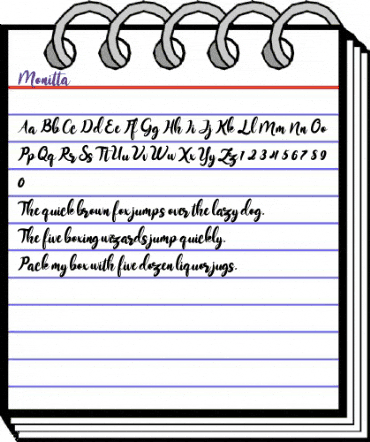 Monitta
Aa Bb Cc Dd Ee Ff Gg Hh Ii Jj Kk Ll Mm Nn Oo
Pp Qq Rr Ss Tt Uu Vv Ww Xx Yy Zz 1 2 3 4 5 6 7 8 9
0
The quick brown fox jumps over the lazy dog.
The five boxing wizards jump quickly.
Pack my box with five dozen liquor jugs.